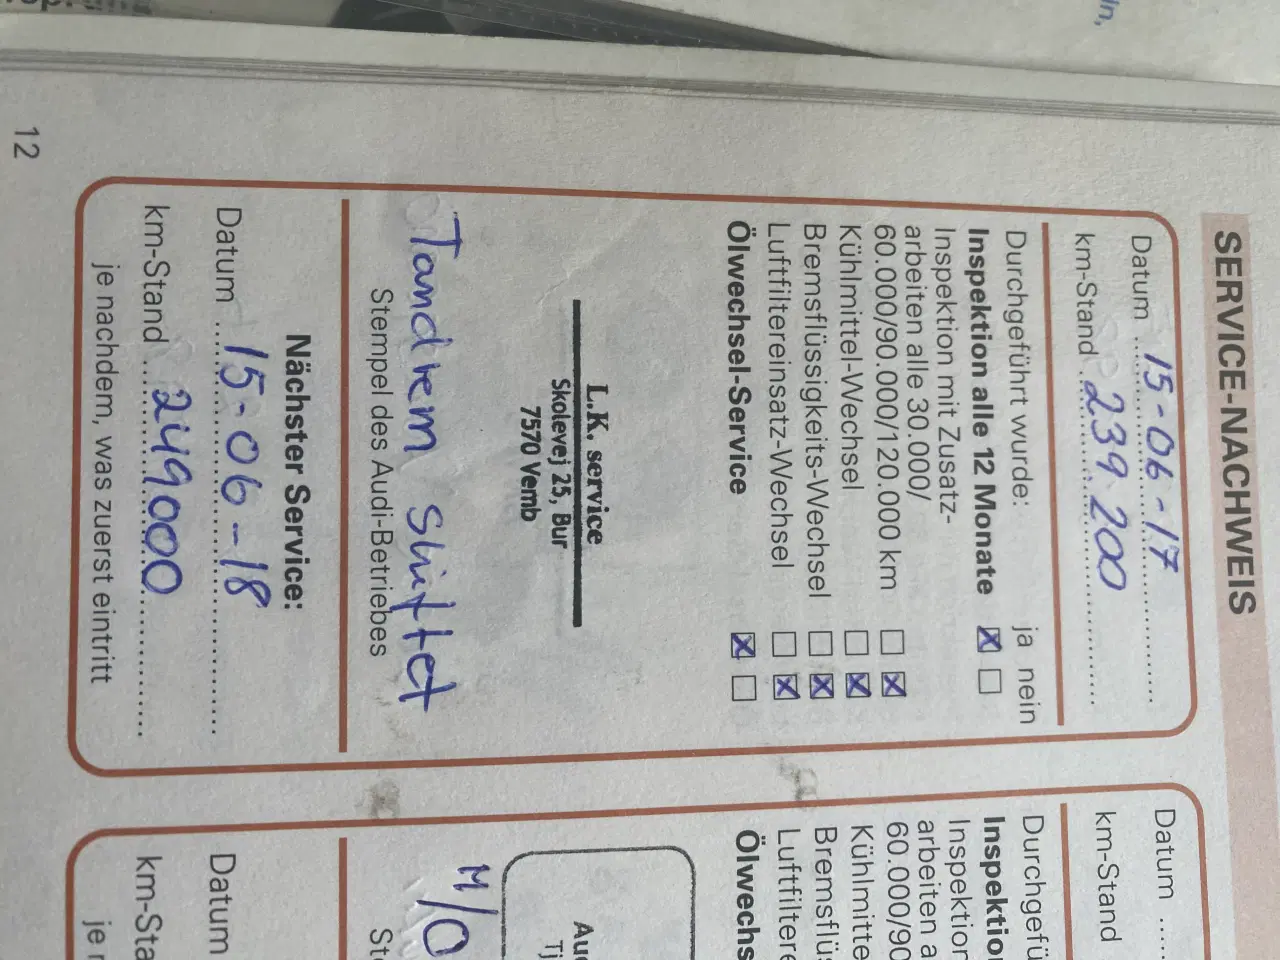 SERVICE-NACHWEIS
Datum 15-06-17
km-Stand 239.200
Durchgeführt wurde: ja nein
Inspektion alle 12 Monate
Inspektion mit Zusatz-
arbeiten alle 30.000/
60.000/90.000/120.000 km
Kühlmittel-Wechsel
Bremsflüssigkeits-Wechsel
Luftfiltereinsatz-Wechsel
Ölwechsel-Service
L.K. service
Skolevej 25, Bur
7570 Vemb
Tandrem skiftet
Stempel des Audi-Betriebes
Nächster Service:
Datum 15-06-18
km-Stand 249000
je nachdem, was zuerst eintritt
12
Datum
km-Stand
Durchgefü
Inspektion
Inspektion
arbeiten a
60.000/90
Kühlmitte
Bremsflüs
Luftfiltere
Ölwechs
Tj
M/O
Ste
Datum
km-Sta
je n